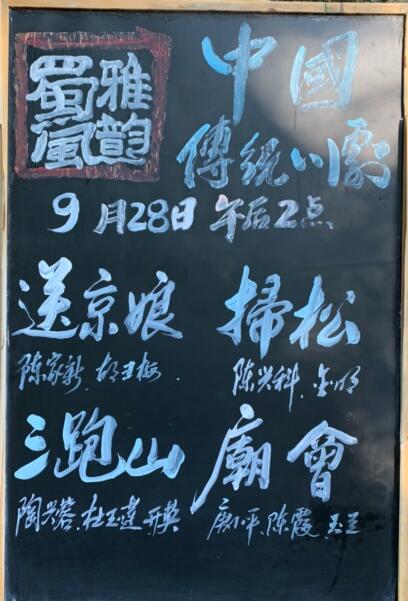 蜀風
雅韵
中國
傳統川劇
9月28日 午后2点
送京娘
陈家新.胡玉梅.
掃松
陈兴科.
三跑山
陶兴蓉.杜玉莲
廟會
陈霞